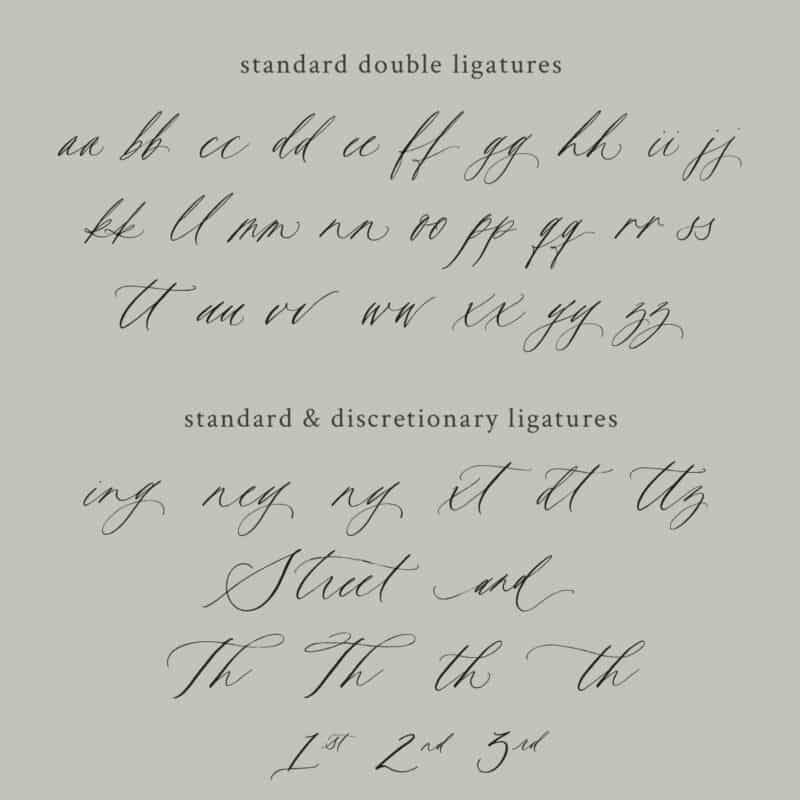 standard double ligatures
aa bb cc dd ee ff gg hh ii jj
kk ll mm nn oo pp qq rr ss
tt uu vv ww xx yy zz
standard & discretionary ligatures
ing ney ny xt dt ttz
Street and
Th Th th th
1st 2nd 3rd